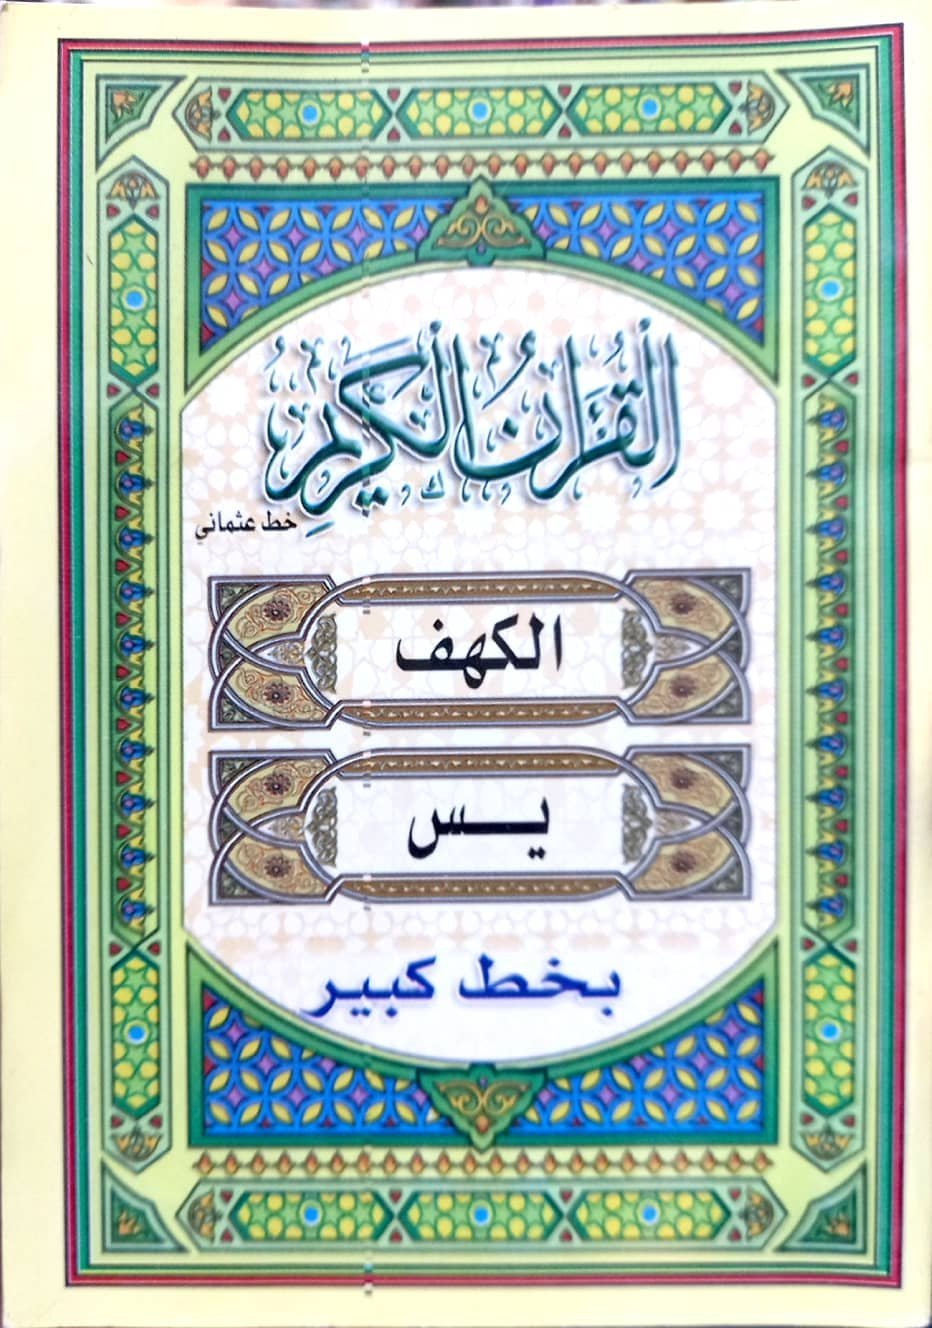 القرآن الكريم
خط عثماني
الكهف
يس
بخط كبير